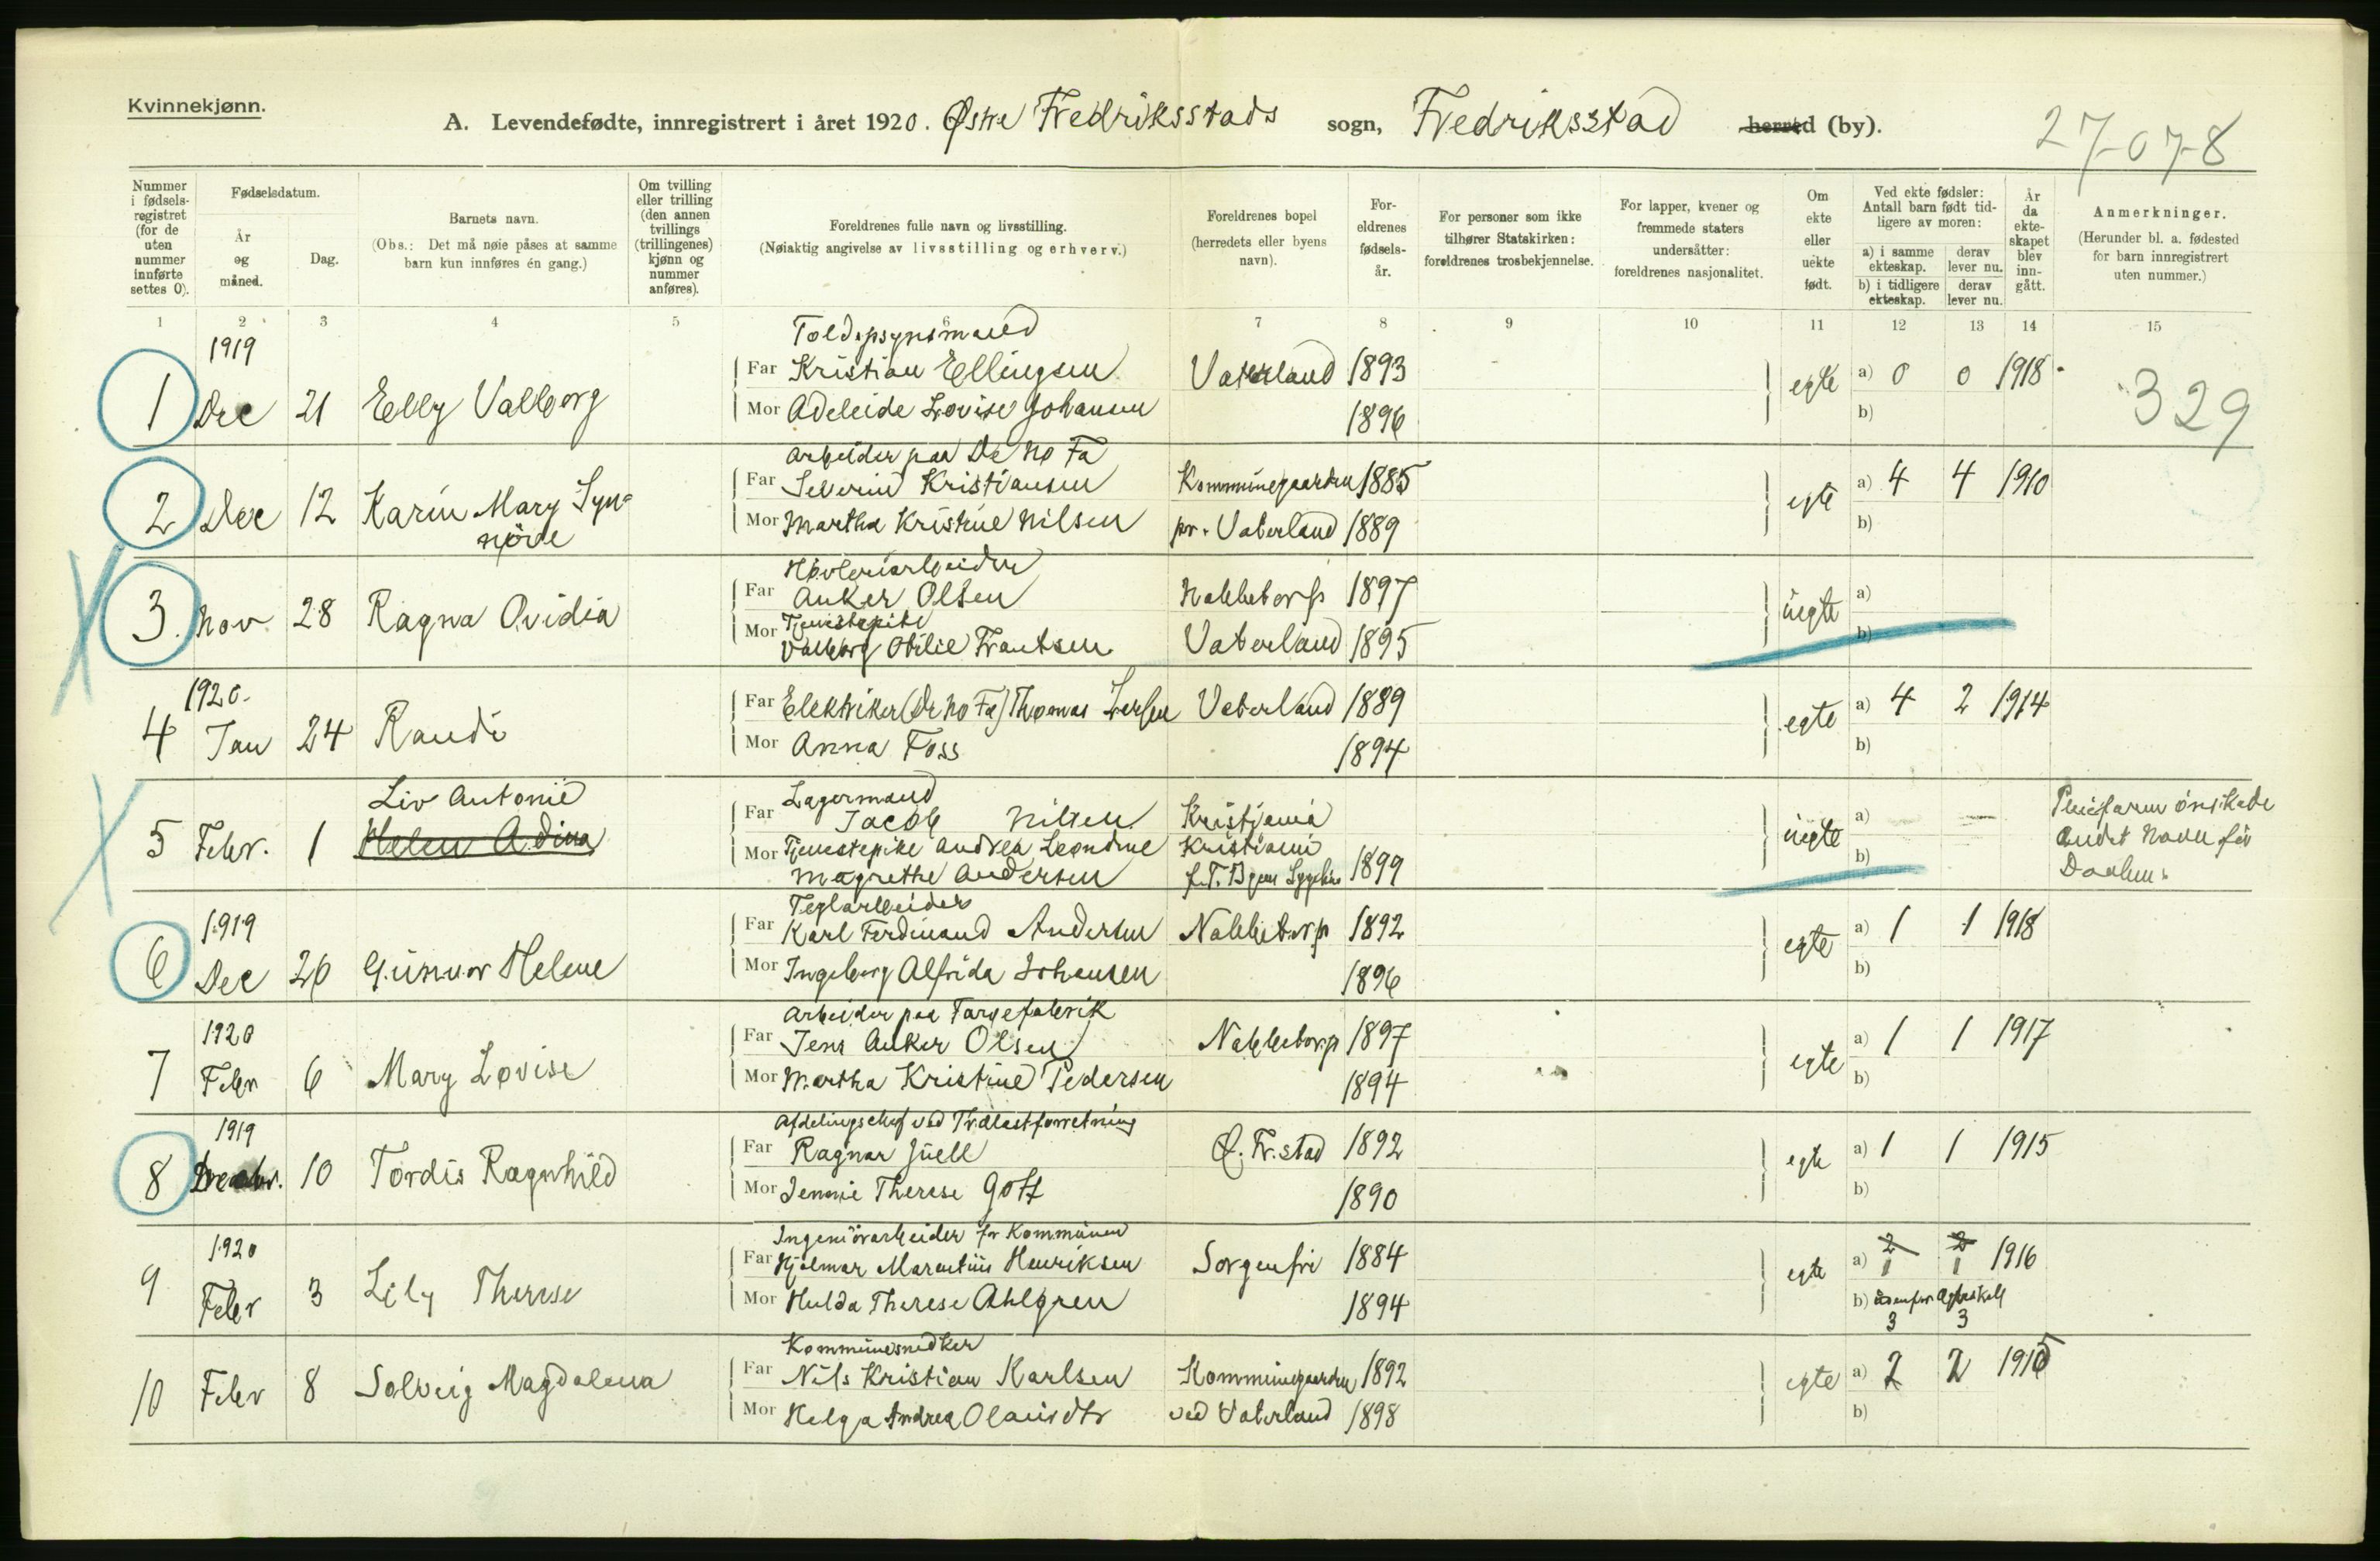 Kvinnekjønn.
A. Levendefødte, innregistrert i året 1920. Østre Fredriksstads sogn, Fredriksstad herred (by).
27-07-8
Nummer i fødsels-registret (for de uten nummer innførte settes 0).
Fødselsdatum.
År og måned.
Dag.
Barnets navn.
(Obs.: Det må nøie påses at samme barn kun innføres én gang.)
Om tvilling eller trilling (den annen tvillings (trillingenes) kjønn og nummer anføres).
Foreldrenes fulle navn og livsstilling.
(Nøiaktig angivelse av livsstilling og erhverv.)
Foreldrenes bopel (herredets eller byens navn).
For-eldrenes fødsels-år.
For personer som ikke tilhører Statskirken: foreldrenes trosbekjennelse.
For lapper, kvener og fremmede staters undersåtter: foreldrenes nasjonalitet.
Om ekte eller uekte født.
Ved ekte fødsler: Antall barn født tid-ligere av moren:
a) i samme ekteskap.
derav lever nu.
b) i tidligere ekteskap.
derav lever nu.
År da ekte-skapet blev inn-gått.
Anmerkninger.
(Herunder bl. a. fødested for barn innregistrert uten nummer.)
1 2 3 4 5 6 7 8 9 10 11 12 13 14 15
1919
1 Dec 21 Elly Valborg
Far Kristian Ellingsen Vaterland 1893
Mor Adeleide Lovise Johansen 1896
egte a) 0 0 1918
b)
329
Arbeider paa De No Fa
2 Dec 12 Karin Mary Syn-
nøve
Far Severin Kristiansen Kommunegaarden 1885
Mor Martha Kristine Nilsen pr. Vaterland 1889
egte a) 4 4 1910
b)
Høvleriarbeider
3 Nov 28 Ragna Ovidia
Far Anker Olsen Nabbetorp 1897
Tjenestepike
Mor Valborg Otilie Frantsen Vaterland 1895
uegte a)
b)
1920
4 Jan 24 Randi
Far Elektriker (De No Fa) Thomas Iversen Vaterland 1889
Mor Anna Foss 1894
egte a) 4 2 1914
b)
Liv Antonie
5 Febr. 1 Helen Adina
Lagermand
Far Jacob Nilsen Kristjania
Mor Tjenestepike Andrea Leondine Kristiania
Magrethe Andersen 1899
uegte a)
b)
ønskede
andet Navn før
Daaben.
1919
Teglarbeider
6 Dec 26 Gunvor Helene
Far Karl Ferdinand Andersen Nabbetorp 1892
Mor Ingeborg Alfrida Johansen 1896
egte a) 1 1 1918
b)
1920
Arbeider paa Farvefabrik
7 Febr 6 Mary Lovise
Far Jens Anker Olsen Nabbetorp 1897
Mor Martha Kristine Pedersen 1894
egte a) 1 1 1917
b)
1919
Afdelingschef ved Trælastforretning
8 Decbr. 10 Tordis Ragnhild
Far Ragnar Juell Ø. Fr.stad 1892
Mor Jennie Therese Gott 1890
egte a) 1 1 1915
b)
1920
Ingeniørarbeider for Kommunen
9 Febr 3 Lily Therese
Far Hjalmar Marentius Henriksen Sorgenfri 1884
Mor Hulda Therese Ahlgren 1894
egte a) 2 2 1916
1 1
b) udenfor Ægteskab
3 3
Kommunesnedker
10 Febr 8 Solveig Magdalena
Far Nils Kristian Karlsen Kommunegaarden 1892
Mor Helga Andrea Olausdtr ved Vaterland 1898
egte a) 2 2 1915
b)